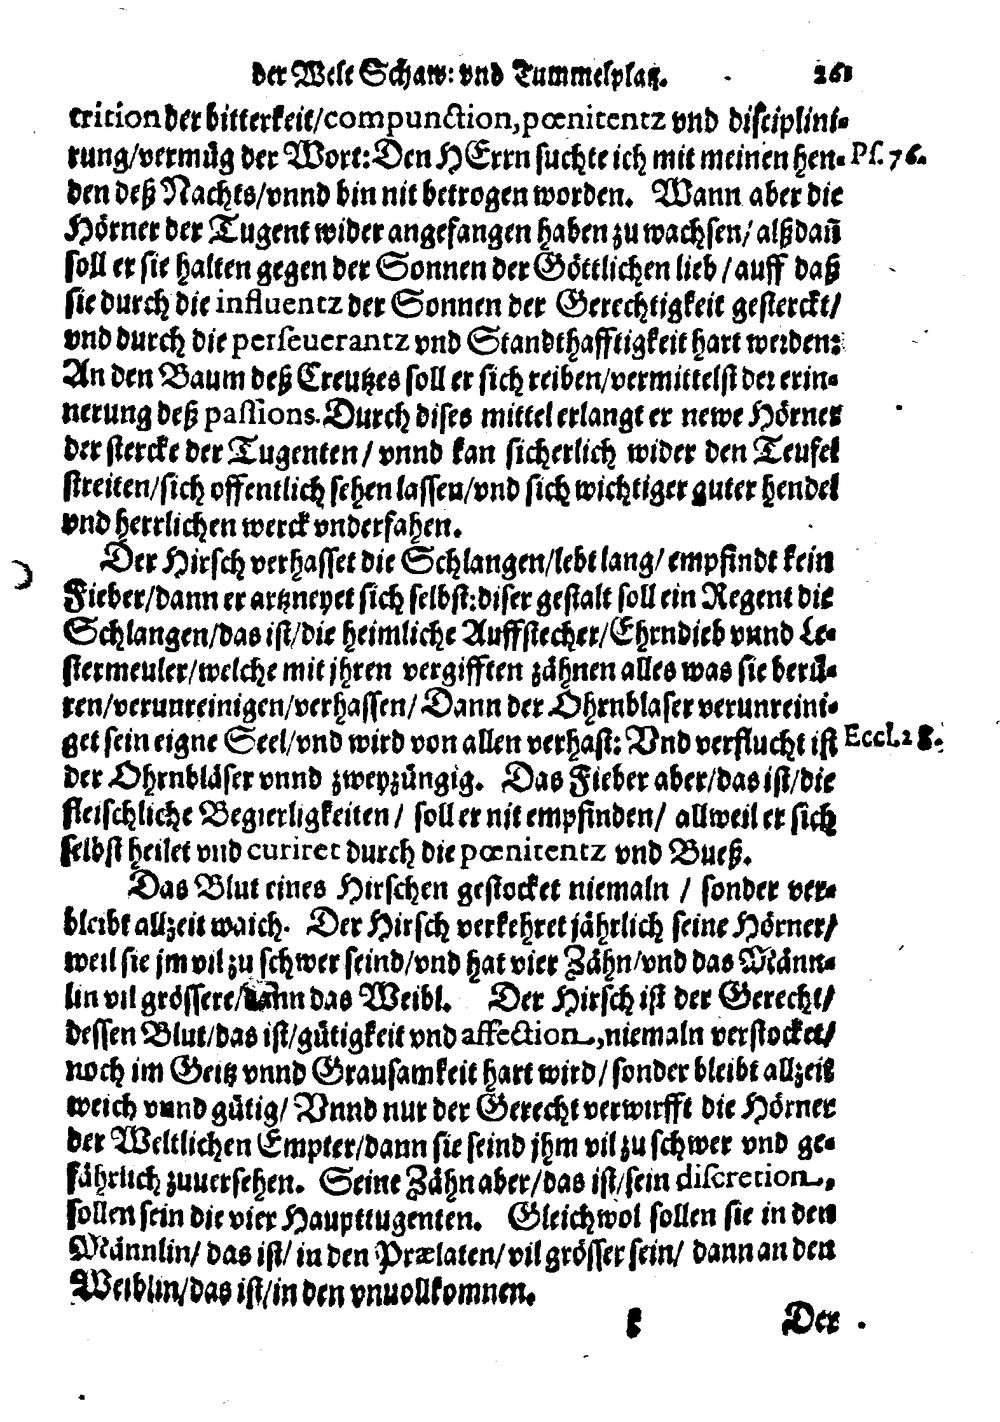 der Welt Schaw: vnd Tummelplatz. 261
trition der bitterkeit/compunction, pœnitentz vnd disciplini-
rung/vermüg der Wort: Den HErrn suchte ich mit meinen hen- Ps. 76.
den deß Nachts/vnnd bin nit betrogen worden. Wann aber die
Hörner der Tugent wider angefangen haben zu wachsen/alßdañ
soll er sie halten gegen der Sonnen der Göttlichen lieb/auff daß
sie durch die influentz der Sonnen der Gerechtigkeit gesterckt/
vnd durch die perseuerantz vnd Standthafftigkeit hart werden:
An den Baum deß Creutzes soll er sich reiben/vermittelst der erin-
nerung deß passions. Durch dises mittel erlangt er newe Hörner
der stercke der Tugenten/vnnd kan sicherlich wider den Teufel
streiten/sich offentlich sehen lassen/vnd sich wichtiger guter hendel
vnd herrlichen werck vnderfahen.
Der Hirsch verhasset die Schlangen/lebt lang/empfindt kein
Fieber/dann er artzneyet sich selbst: diser gestalt soll ein Regent die
Schlangen/das ist/die heimliche Auffstecher/Ehrndieb vnnd Le-
stermeuler/welche mit jhren vergifften zähnen alles was sie berü-
ren/verunreinigen/verhassen/Dann der Ohrnblaser verunreini-
get sein eigne Seel/vnd wird von allen verhast: Vnd verflucht ist Eccl. 28.
der Ohrnbläser vnnd zweyzüngig. Das Fieber aber/das ist/die
fleischliche Begierligkeiten/soll er nit empfinden/allweil er sich
selbst heilet vnd curiret durch die pœnitentz vnd Bueß.
Das Blut eines Hirschen gestocket niemaln/sonder ver-
bleibt allzeit waich. Der Hirsch verkehret jährlich seine Hörner/
weil sie jm vil zu schwer seind/vnd hat vier Zähn/vnd das Männ-
lin vil grössere/dann das Weibl. Der Hirsch ist der Gerecht/
dessen Blut/das ist/gütigkeit vnd affection, niemaln verstocket/
noch im Geitz vnnd Grausamkeit hart wird/sonder bleibt allzeit
weich vnnd gütig/Vnnd nur der Gerecht verwirfft die Hörner
der Weltlichen Empter/dann sie seind jhm vil zu schwer vnd ge-
fährlich zuuersehen. Seine Zähn aber/das ist/sein discretion,
sollen sein die vier Haupttugenten. Gleichwol sollen sie in den
Männlin/das ist/in den Prælaten/vil grösser sein/dann an den
Weiblin/das ist/in den vnuollkomnen.
k Der